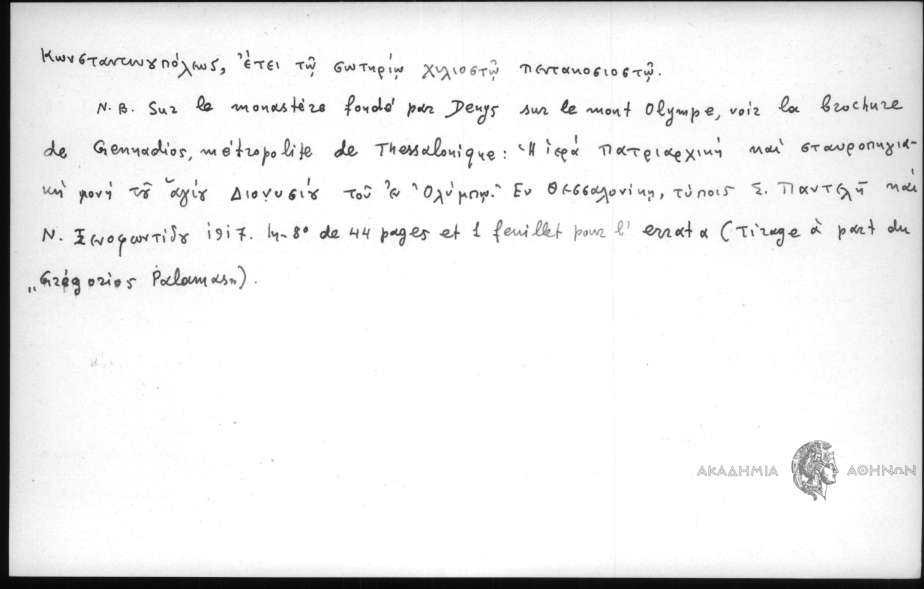 Κωνσταντινουπόλεως, ἔτει τῷ σωτηρίῳ χιλιοστῷ πεντακοσιοστῷ.
N.B. Sur le monastère fondé par Denys sur le mont Olympe, voir la brochure
de Gennadios, métropolite de Thessalonique: Ἡ ἱερά Πατριαρχική καί σταυροπηγια-
κή μονή τοῦ ἁγίου Διονυσίου τοῦ ἐν Ὀλύμπῳ. Ἐν Θεσσαλονίκῃ, τύποις Σ. Παντελῆ καί
Ν. Ξενοφωντίδου 1917. In-8° de 44 pages et 1 feuillet pour l' errata (Tirage à part du
„Grégorios Palamas").
ΑΚΑΔΗΜΙΑ ΑΘΗΝΩΝ